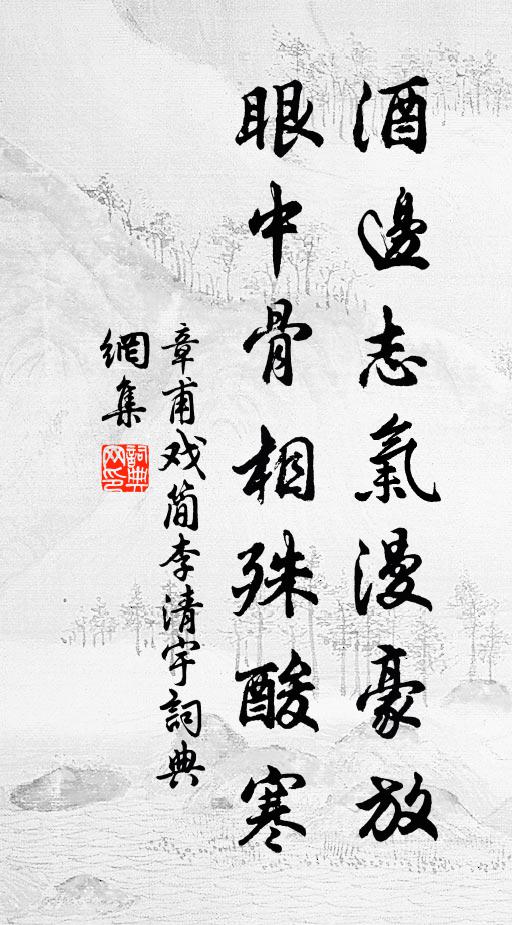 酒邊志氣漫豪放
眼中骨相殊酸寒
章甫戏简李清宇詞典
網集
詞典
网印